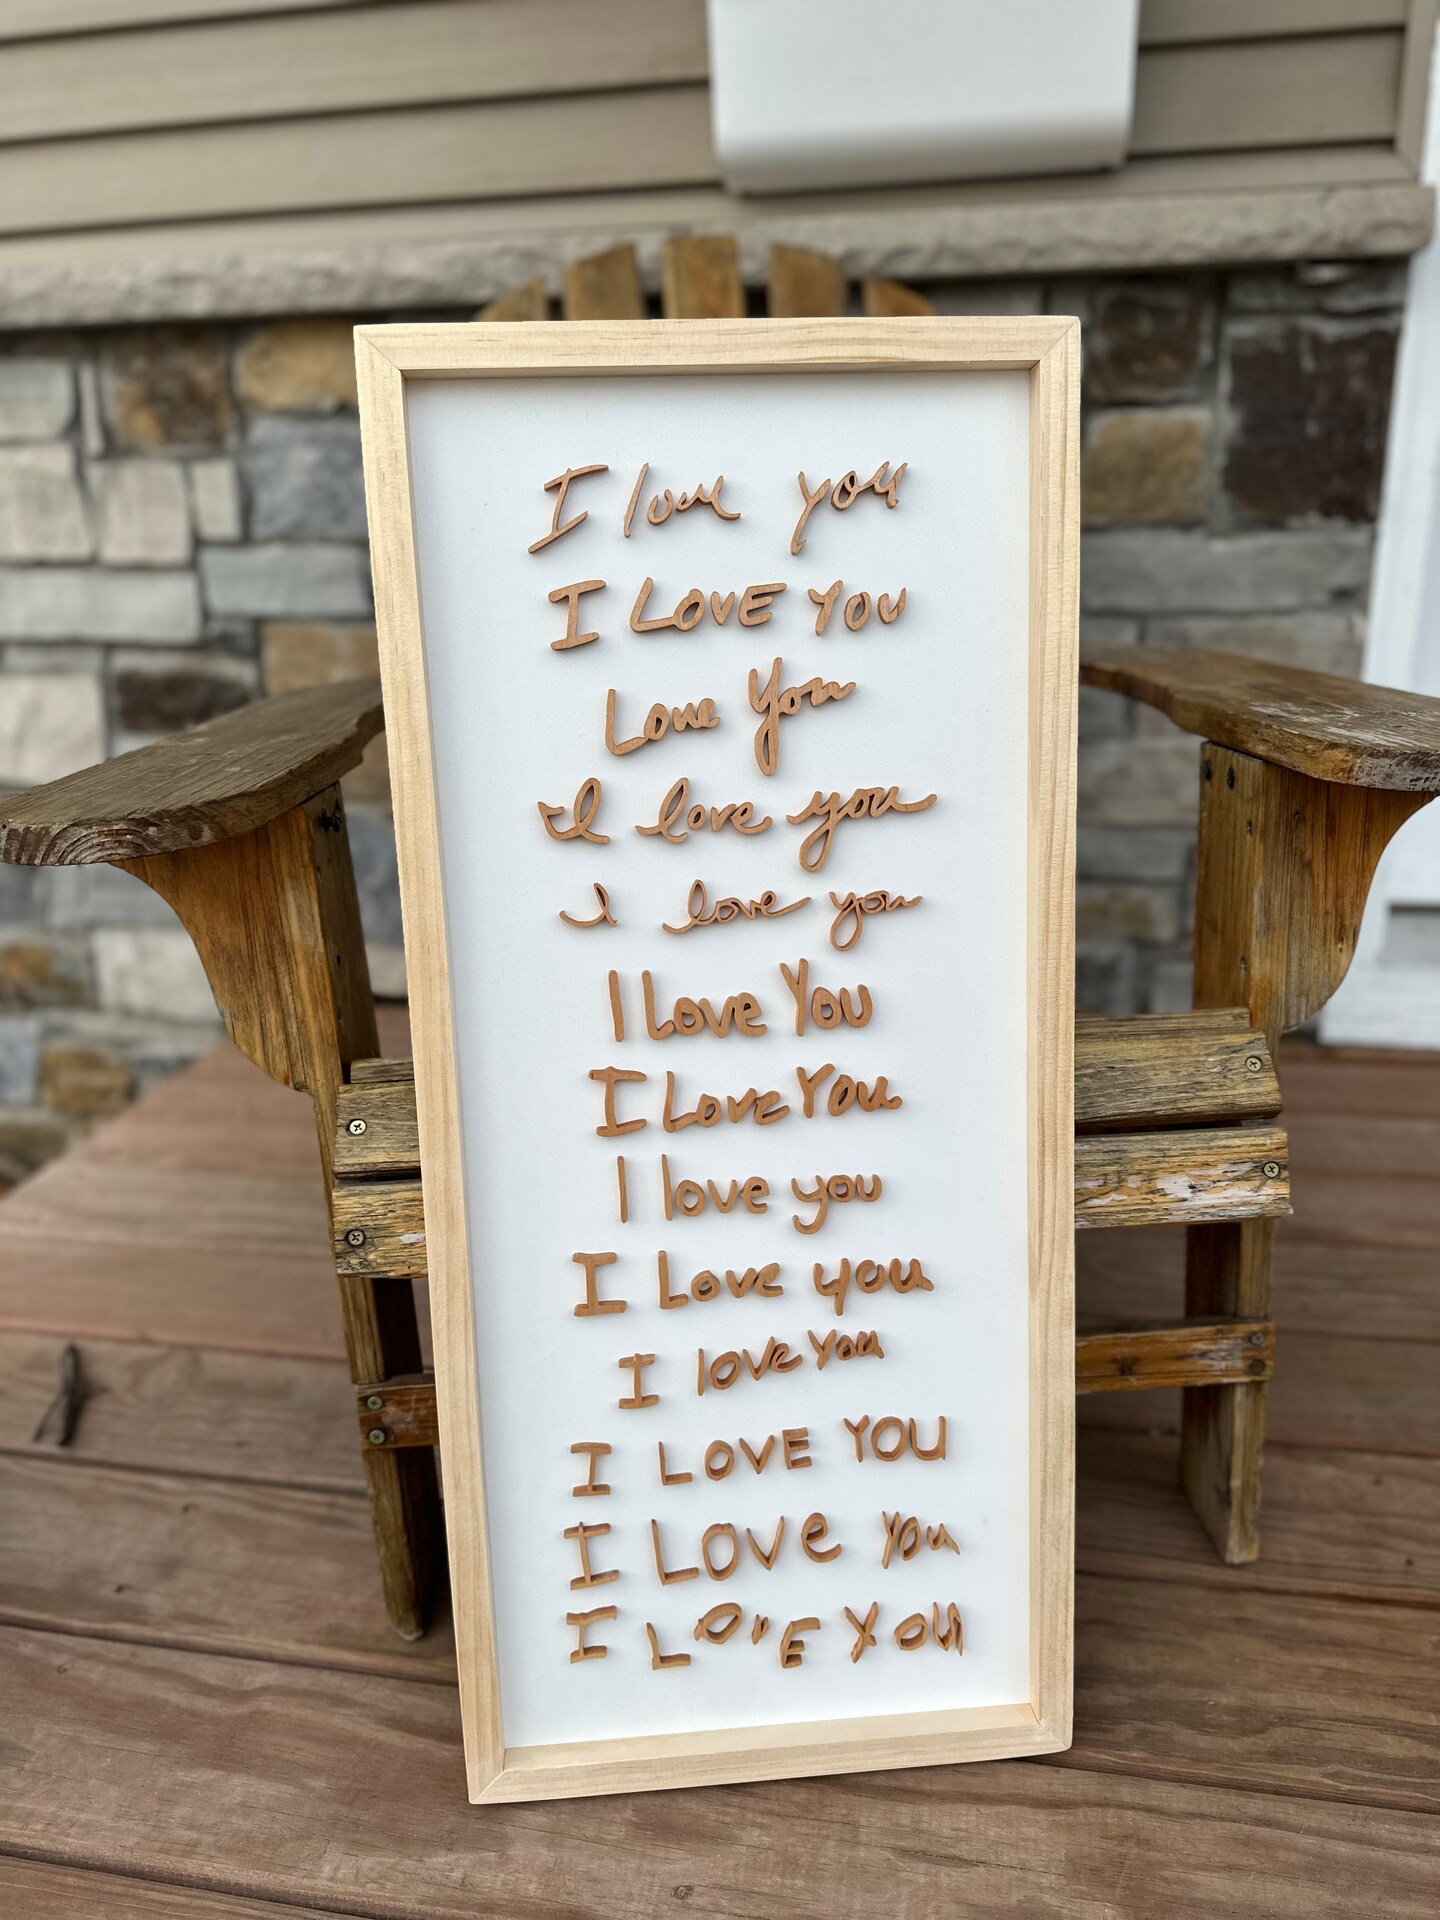 I love you
I LOVE YOU
Love You
I love you
I love you
I Love You
I Love You
I love you
I Love you
I love You
I LOVE YOU
I LOVe You
I LOvE YOU